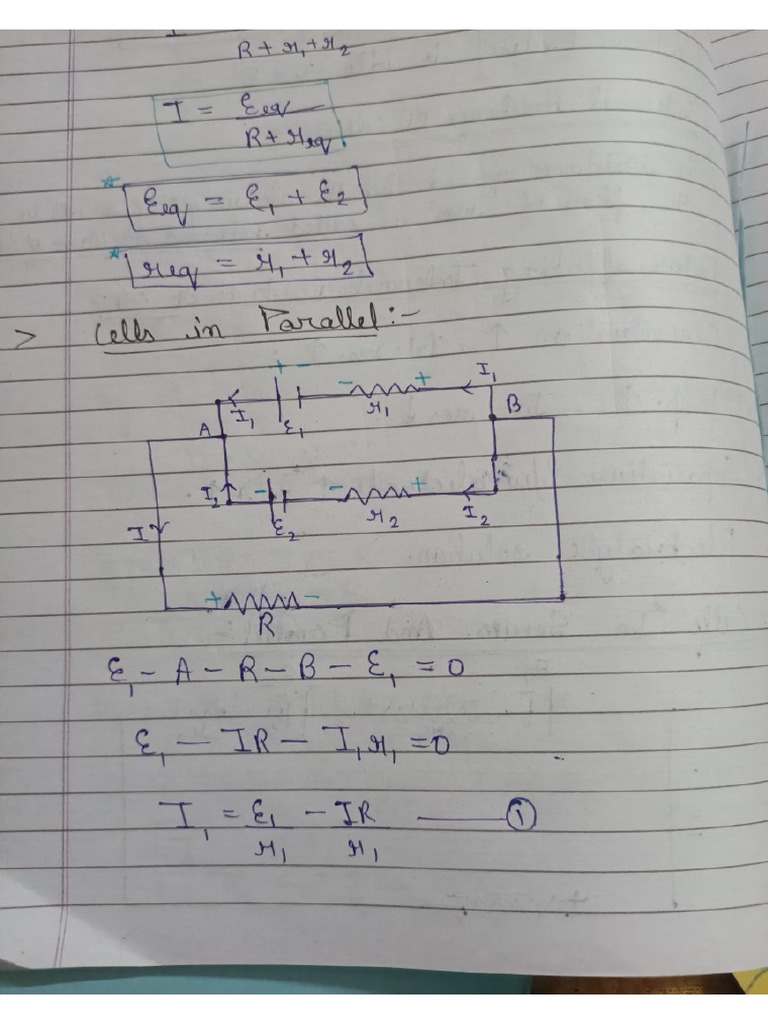 R + r₁ + r₂
I = Ɛeq / R + req
* Ɛeq = Ɛ₁ + Ɛ₂
* req = r₁ + r₂
> Cells in Parallel :-
+ -
I₁
- +
A I₁ Ɛ₁ r₁ B
I₂ - - +
Ɛ₂ r₂ I₂
I
+ -
R
Ɛ₁ - A - R - B - Ɛ₁ = 0
Ɛ₁ - IR - I₁r₁ = 0
I₁ = Ɛ₁/r₁ - IR/r₁ —— ①